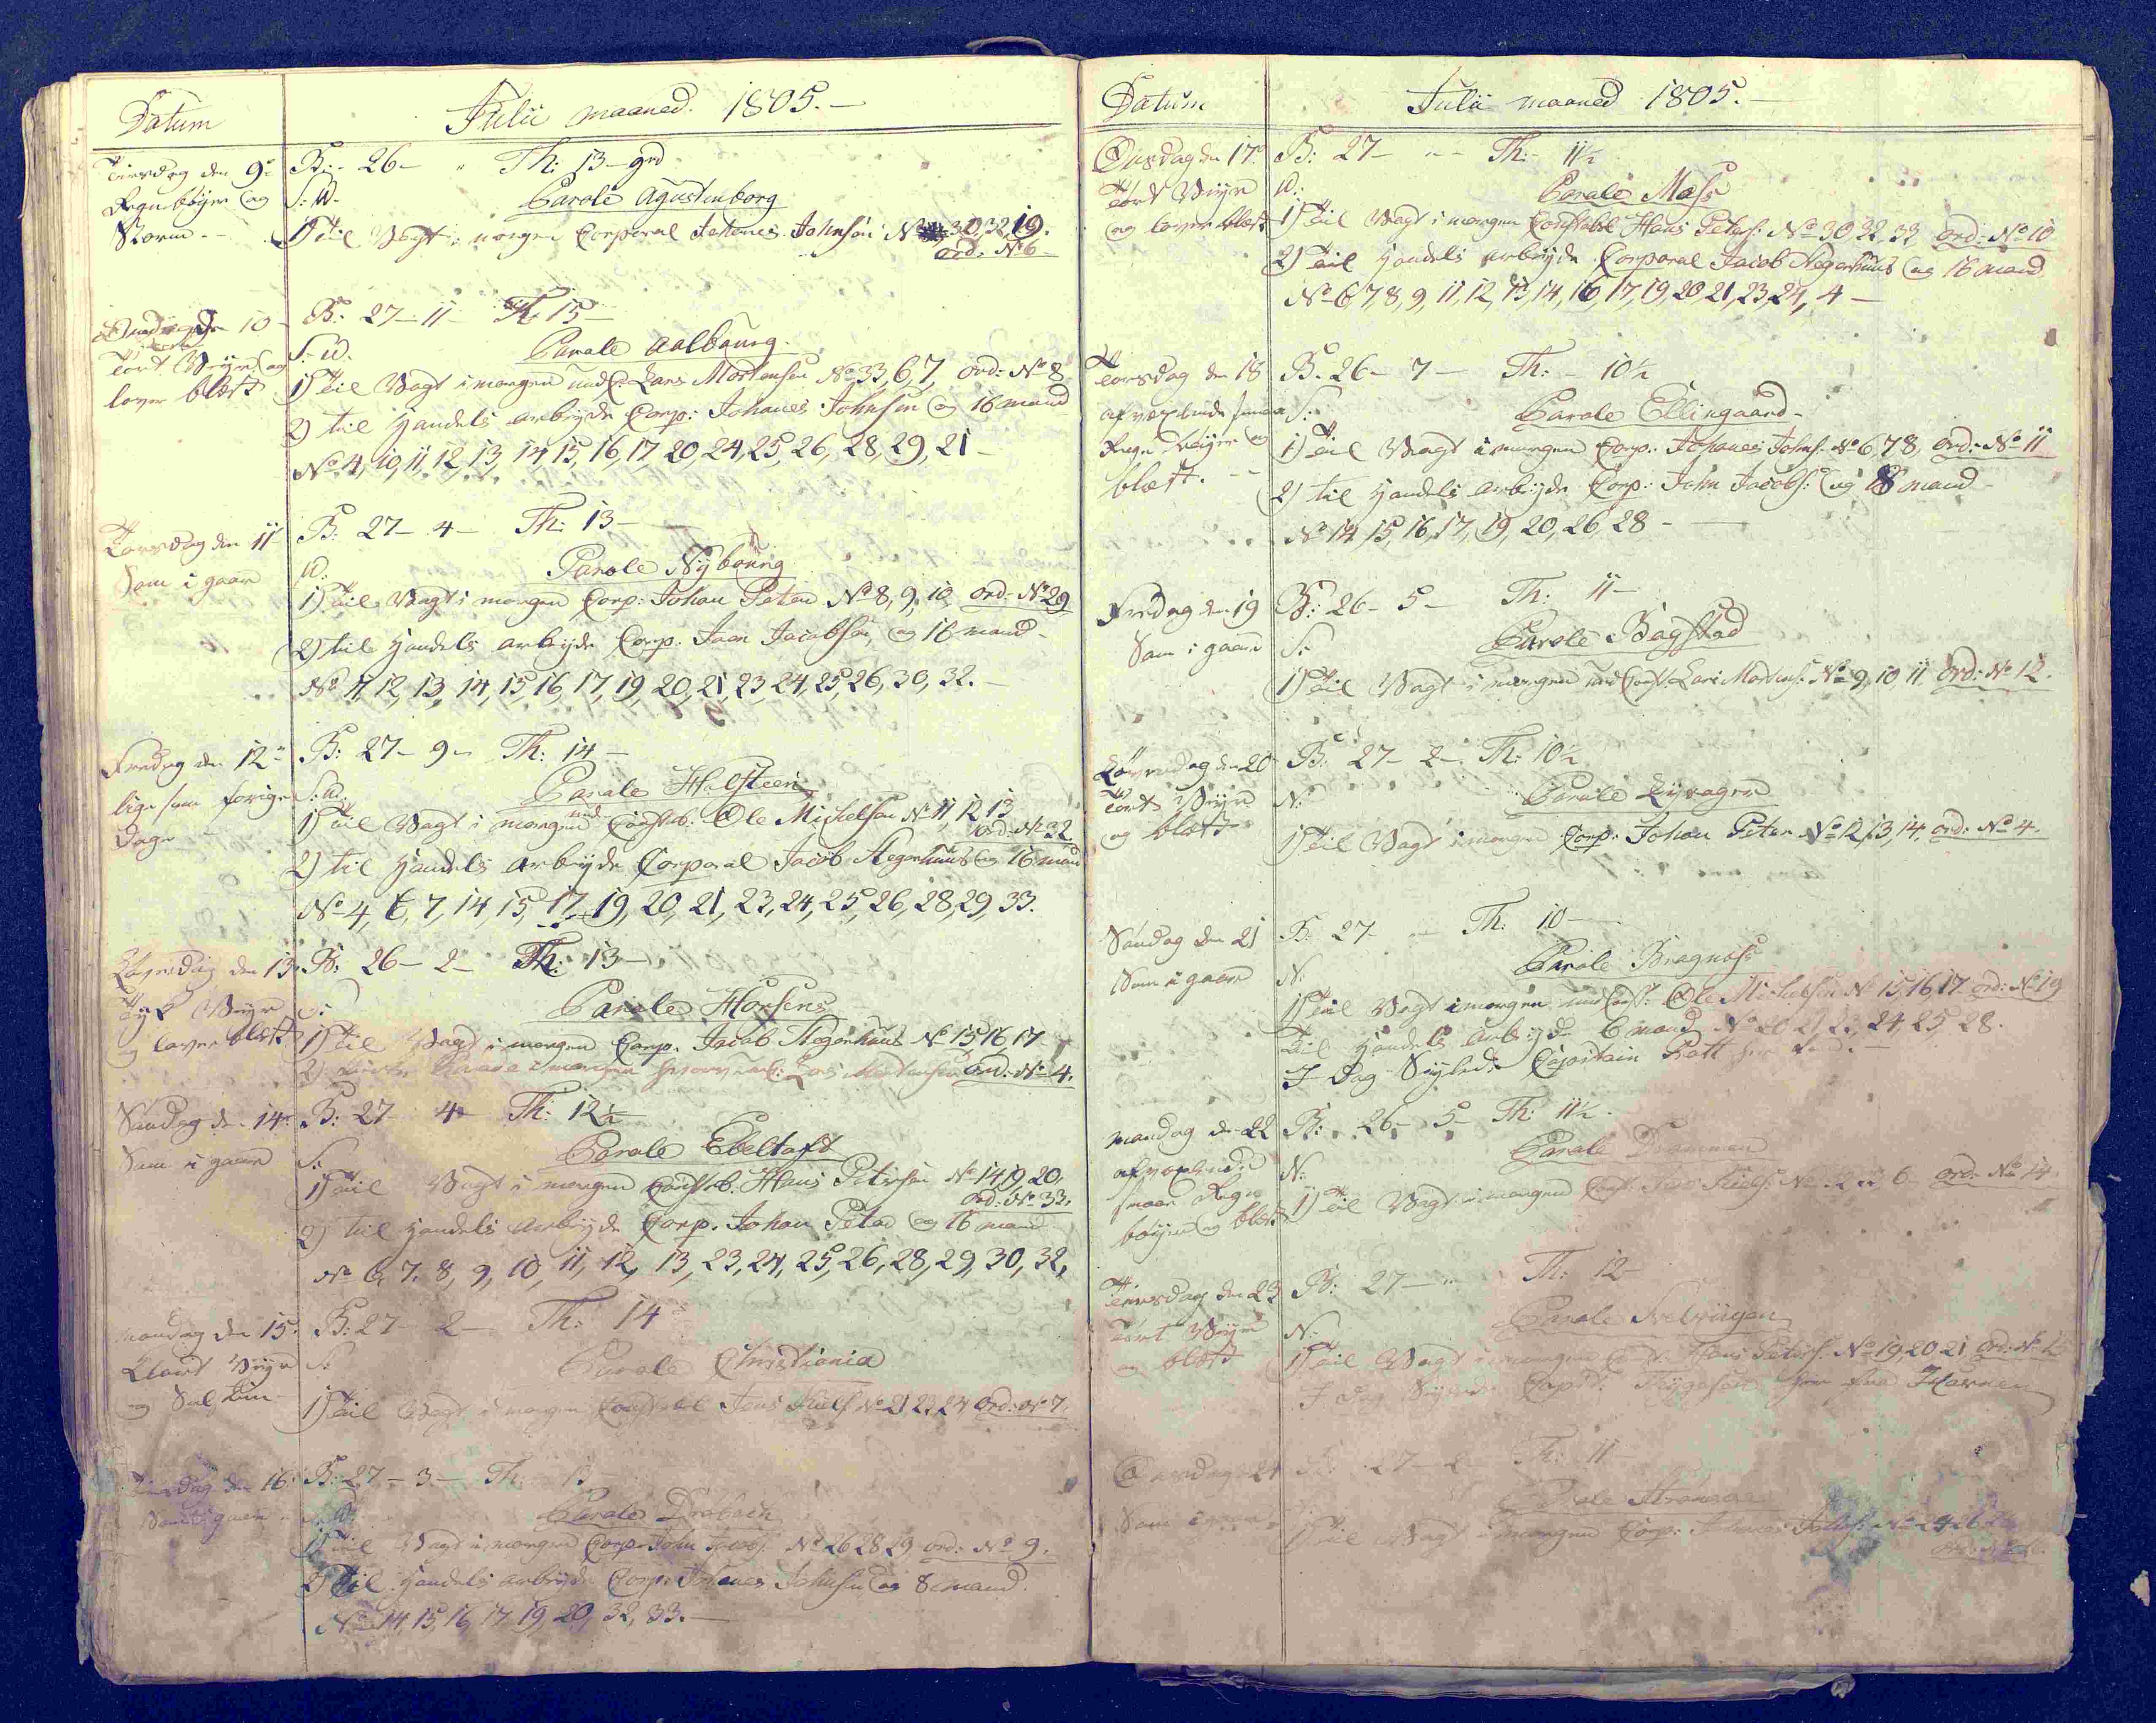 Datum
Julii maaned. 1805.
Tirsdag den 9
Regn böyer og
Storm
B: 26 - Th: 13 grd
S: W.
Parole Agustenborg
1) Til Vagt i morgen Corporal Johanes Johnsen No 30, 32, 19.
ord: No 6
den 10
Tört Veyr og
lover blæst
B: 27 - 11 - Th: 15
S: W.
Parole Aalbourg.
1) Til Vagt i morgen Lars Mortensen No 33, 6, 7, ord: No 8
2) til Handels arbeyde Corp: Johanes Johnsen og 16 mand
No 4, 10, 11, 12, 13, 14, 15, 16, 17, 20, 24, 25, 26, 28, 29, 21
Torsdag den 11
Som i gaar
B: 27 - 4 - Th: 13 -
W:
Parole Nybourg
1) Til Vagt i morgen Corp: Johan Peter No 8, 9, 10 ord: No 29
2) til Handels arbeyde Corp: Joen Jacobsen, og 16 mand
No 11, 12, 13, 14, 15, 16, 17, 19, 20, 21, 23, 24, 25, 26, 30, 32.
Fredag den 12
lige som forige
dage
B: 27 - 9 - Th: 14 -
S: W.
Parole Holsteen
1) Til Vagt i morgen Constab: Ole Michelsen No 11, 12 13
ord: No 32
2) til Handels arbeyde Corporal Jacob Hegerhuus og 16 mand
No 4, 6, 7, 14, 15, 17, 19, 20, 21, 23, 24, 25, 26, 28, 29, 33.
Löverdag den 13
Tyk Veyr
og laver blæst
B: 26 - 2 - Th: 13 -
S:
Parole Horsens
1) Til Vagt i morgen Corp. Jacob Hegerhuus No 15 16 17
2) i morgen ord: No 4.
Söndag den 14
Som i gaar
B: 27 - 4 - Th: 12½
S:
Parole Ebeltoft
1) Til Vagt i morgen Constab. Hans Petersen No 14, 19, 20,
ord: No 33.
2) til Handels arbeyde Corp. Johan Peter og 16 mand
No 6, 7, 8, 9, 10, 11, 12, 13, 23, 24, 25, 26, 28, 29, 30, 32,
Mandag den 15
Klart Veyr
og Solskin
B: 27 - 2 - Th: 14
S:
Parole Christiania
1) Til Vagt i morgen Constabel Jens Niels: No 21 23 24 ord: No 7.
Tirsdag den 16
Som i gaar
B: 27 - 3 - Th:
Parole Drobach
1) Til Vagt i morgen Corp: John Jacobs: No 26 28 29 ord: No 9.
2) Til Handels arbeyde Corp: Johanes Johnsen og 8 mand.
No 14, 15, 16, 17, 19, 20, 32, 33. -
Datum
Julii maaned 1805.
Onsdag den 17
Tört Veyr
og lover blæst
B: 27 - Th: 11½
W:
Parole Moss
1) Til Vagt i morgen Constabel Hans Peters: No 30, 32, 33 ord: No 10
2) Til Handels arbeyde Corporal Jacob Hegerhuus og 16 mand
No 6, 7, 8, 9, 11, 12, 13, 14, 16, 17, 19, 20, 21, 23, 24, 4 -
Torsdag den 18
afvexlende smaa
Regn böyer og
blæst.
B: 26 - 7 - Th: - 10½
S:
Parole Ellingaard
1) Til Vagt i morgen Corp: Johanes Johns: No 6, 7, 8, ord: No 11
2) til Handels arbeyde Corp: John Jacobs: og 8 mand
No 14, 15, 16, 17, 19, 20, 26, 28 -
Fredag den 19
Som i gaar
B: 26 - 5 - Th: 11 -
S:
Parole Bagstad
1) Til Vagt i morgen Const: Lars Mortens: No 9, 10, 11 ord: No 12.
Löverdag den 20
Tört Veyr
og blæst
B: 27 - 2 - Th: 10½
N:
Parole
1) Til Vagt i morgen Corp: Johan Peter No 12, 13, 14, ord: No 4.
Söndag den 21
Som i gaar
B: 27 - Th: 10
N:
Parole Bragnæss
1) Til Vagt i morgen Const: Ole Michelsen No 15, 16, 17 ord: No 19
Til Handels Arbeyde 6 mand No 20 21 23, 24, 25, 28.
I Dag Seylede Capitain
Mandag den 22
afvexlende
smaa Regn
böyer og blæst
B: 26 - 5 - Th: 11½
N:
Parole Drammen
1) Til Vagt i morgen Const: ord: No 14
Tirsdag den 23
Tört Veyr
og blæst
B: 27 - Th: 12
N:
Parole
1) Til Vagt i morgen Hans Peters: No 19, 20 21 ord: No
I dag Seylede Capit: her fra Havnen
Onsdag 24
Som i gaar
27 - 2 - Th: 11
Parole
1) Til Vagt i morgen Corp: Johanes Johns: No